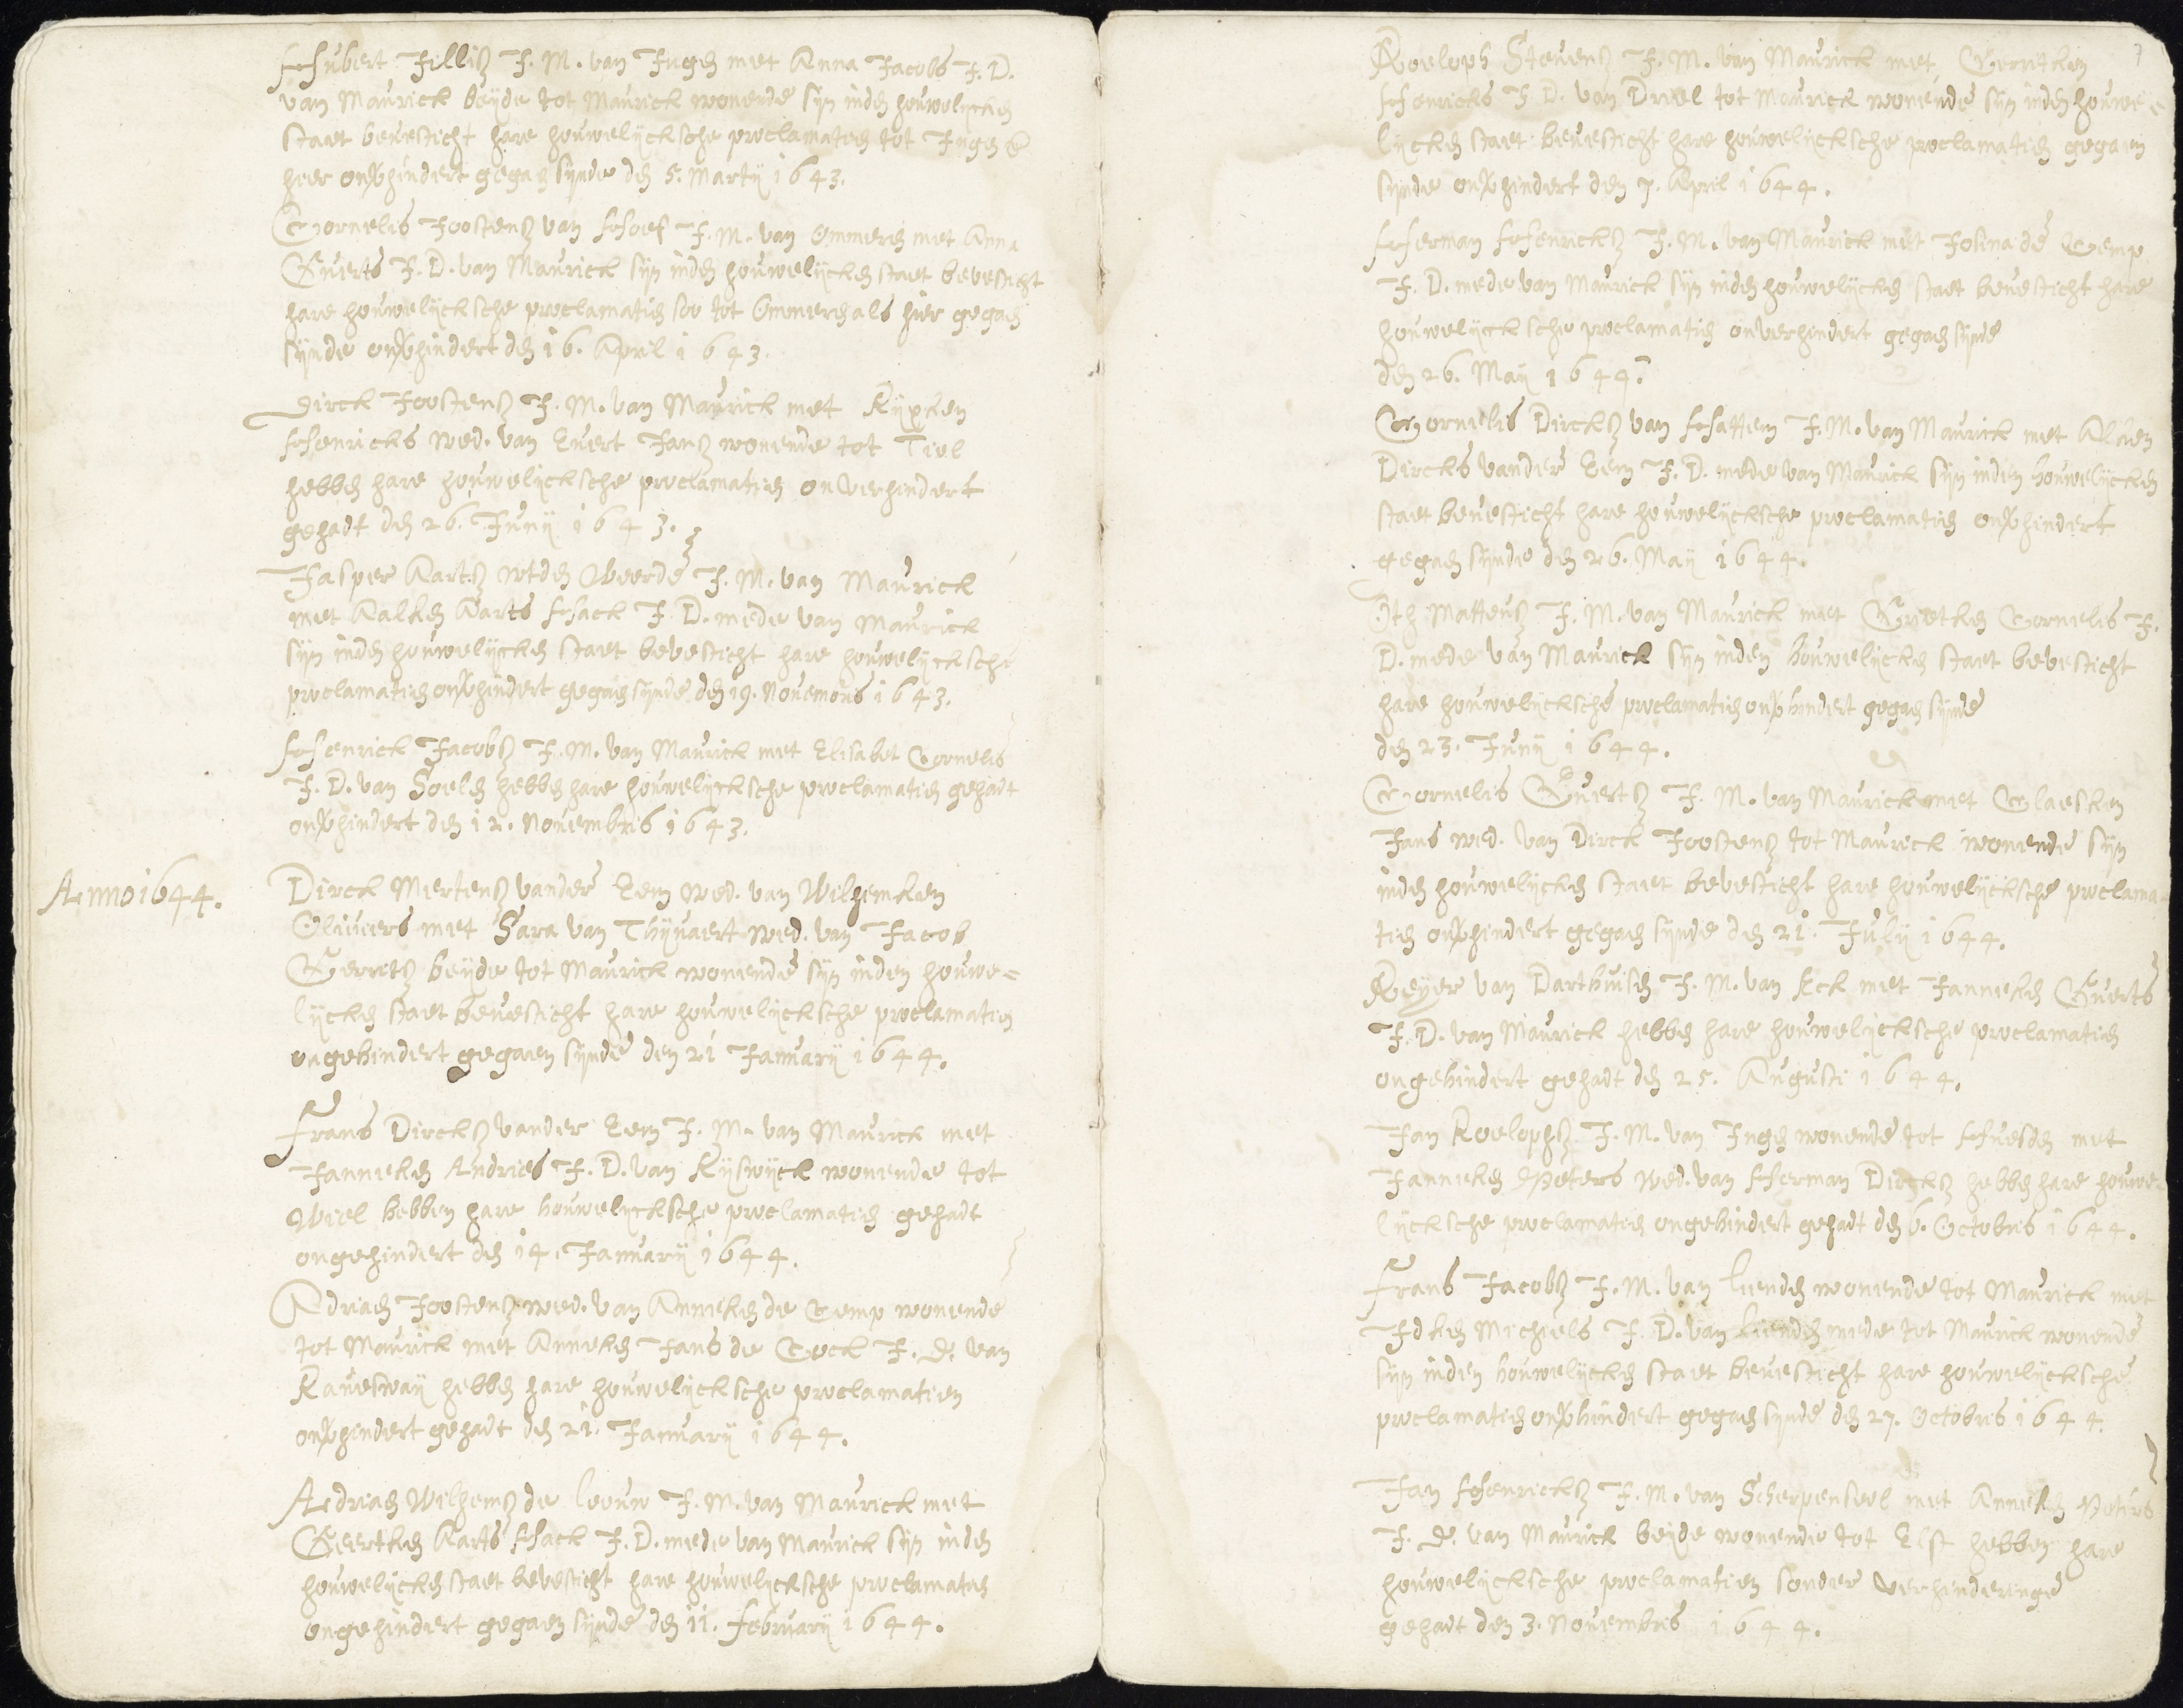 Hubert Jilliß J. M. van Ingen met Anna Jacobs J. D.
van Maurick beyde tot Maurick wonende sijn inden houwelijcken
staet bevesticht hare houwelijcksche proclamatien tot Ingen &
hier onverhindert gegaen sijnde den 5. Martij 1643.
Cornelis Joostenß van Hoef J. M. van Ommeren met Anna
Everts J. D. van Maurick sijn inden houwelijcken staet bevesticht
hare houwelijcksche proclamatien soo tot Ommeren als hier gegaen
sijnde onverhindert den 16. April 1643.
Dirck Joostenß J. M. van Maurick met Rijxken
Henricks wed. van Evert Janß wonende tot Tiel
hebben hare houwelijcksche proclamatien onverhindert
gehadt den 26. Junij 1643.
Jasper Aartß wtden Weerde J. M. van Maurick
met Aalken Aarts Hack J. D. mede van Maurick
sijn inden houwelijcken staet bevesticht hare houwelijcksche
proclamatien onverhindert gegaen sijnde den 19. Novembris 1643.
Henrick Jacobß J. M. van Maurick met Elisabet Cornelis
J. D. van Soelen hebben hare houwelijcksche proclamatien gehadt
onverhindert den 12. Novembris 1643.
Anno 1644.
Dirck Mertenß vander Eem wed. van Wilhemken
Olivers met Sara van Thijnaert wed. van Jacob
Gerritß beyde tot Maurick wonende sijn inden houwe=
lijcken staet bevesticht hare houwelijcksche proclamatien
ongehindert gegaen sijnde den 21 Januarij 1644.
Frans Dircksß vander Eem J. M. van Maurick met
Janneken Andries J. D. van Rijswijck wonende tot
Wiel hebben hare houwelijcksche proclamatien gehadt
ongehindert den 14. Januarij 1644.
Adriaen Joostenß wed. van Anneken de Cemp wonende
tot Maurick met Anneken Jans de Cock J. D. van
Raveswaij hebben hare houwelijcksche proclamatien
onverhindert gehadt den 21. Januarij 1644.
Adriaen Wilhemß de Leouw J. M. van Maurick met
Geertken Aarts Hack J. D. mede van Maurick sijn inden
houwelijcken staet bevesticht hare houwelijcksche proclamatien
ongehindert gegaen sijnde den 11. Februarij 1644.
Roeloph Stevenß J. M. van Maurick met Gerritken
Henricks J. D. van Driel tot Maurick wonende sijn inden houwe=
lijcken staet bevesticht hare houwelijcksche proclamatien gegaen
sijnde onverhindert den 7. April 1644.
Herman Henricksß J. M. van Maurick met Josina de Cemp
J. D. mede van Maurick sijn inden houwelijcken staet bevesticht hare
houwelijcksche proclamatien onverhindert gegaen sijnde
den 26. Maij 1644.
Cornelis Dircksß van Hattem J. M. van Maurick met Alken
Dircks vander Eem J. D. mede van Maurick sijn inden houwelijcken
staet bevesticht hare houwelijcksche proclamatien onverhindert
gegaen sijnde den 26. Maij 1644.
Oth Matteusß J. M. van Maurick met Grietken Cornelis J.
D. mede van Maurick sijn inden houwelijcken staet bevesticht
hare houwelijcksche proclamatien onverhindert gegaen sijnde
den 23. Junij 1644.
Cornelis Evertß J. M. van Maurick met Claesken
Jans wed. van Dirck Joostenß tot Maurick wonende sijn
inden houwelijcken staet bevesticht hare houwelijcksche proclama=
tien onverhindert gegaen sijnde den 21. Julij 1644.
Reyer van Darthuisen J. M. van Eck met Janneken Everts
J. D. van Maurick hebben hare houwelijcksche proclamatien
ongehindert gehadt den 25. Augusti 1644.
Jan Roelophsß J. M. van Ingen wonende tot Huesden met
Janneken Peters wed. van Herman Dircksß hebben hare houwe
lijcksche proclamatien ongehindert gehadt den 6. Octobris 1644.
Frans Jacobß J. M. van Lienden wonende tot Maurick met
Idken Michiels J. D. van Lienden mede tot Maurick wonende
sijn inden houwelijcken staet bevesticht hare houwelijcksche
proclamatien onverhindert gegaen sijnde den 27. Octobris 1644.
Jan Henricksß J. M. van Scherpenseel met Anneken Peters
J. D. van Maurick beyde wonende tot Elst hebben hare
houwelijcksche proclamatien sonder verhinderinge
gehadt den 3. Novembris 1644.